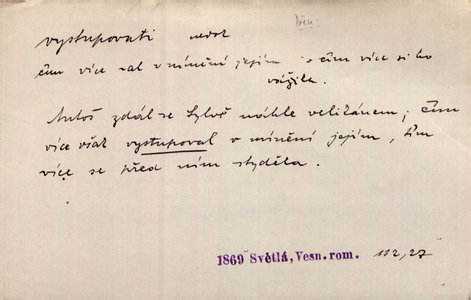 Přen.
vystupovati nedok
čím více v mínění jejím a čím více si ho
vážila.
Antoš zdál se Sylvě náhle velikánem; čím
více však vystupoval v mínění jejím, tím
více se před ním styděla.
1869 Světlá, Vesn. rom. 112, 27